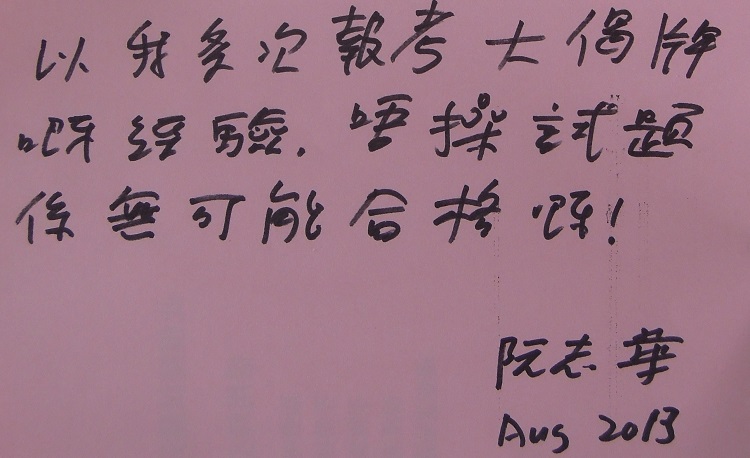 以我多次報考大偈牌
呀經驗，唔操試題
係無可能合格呀！
阮志華
Aug 2013